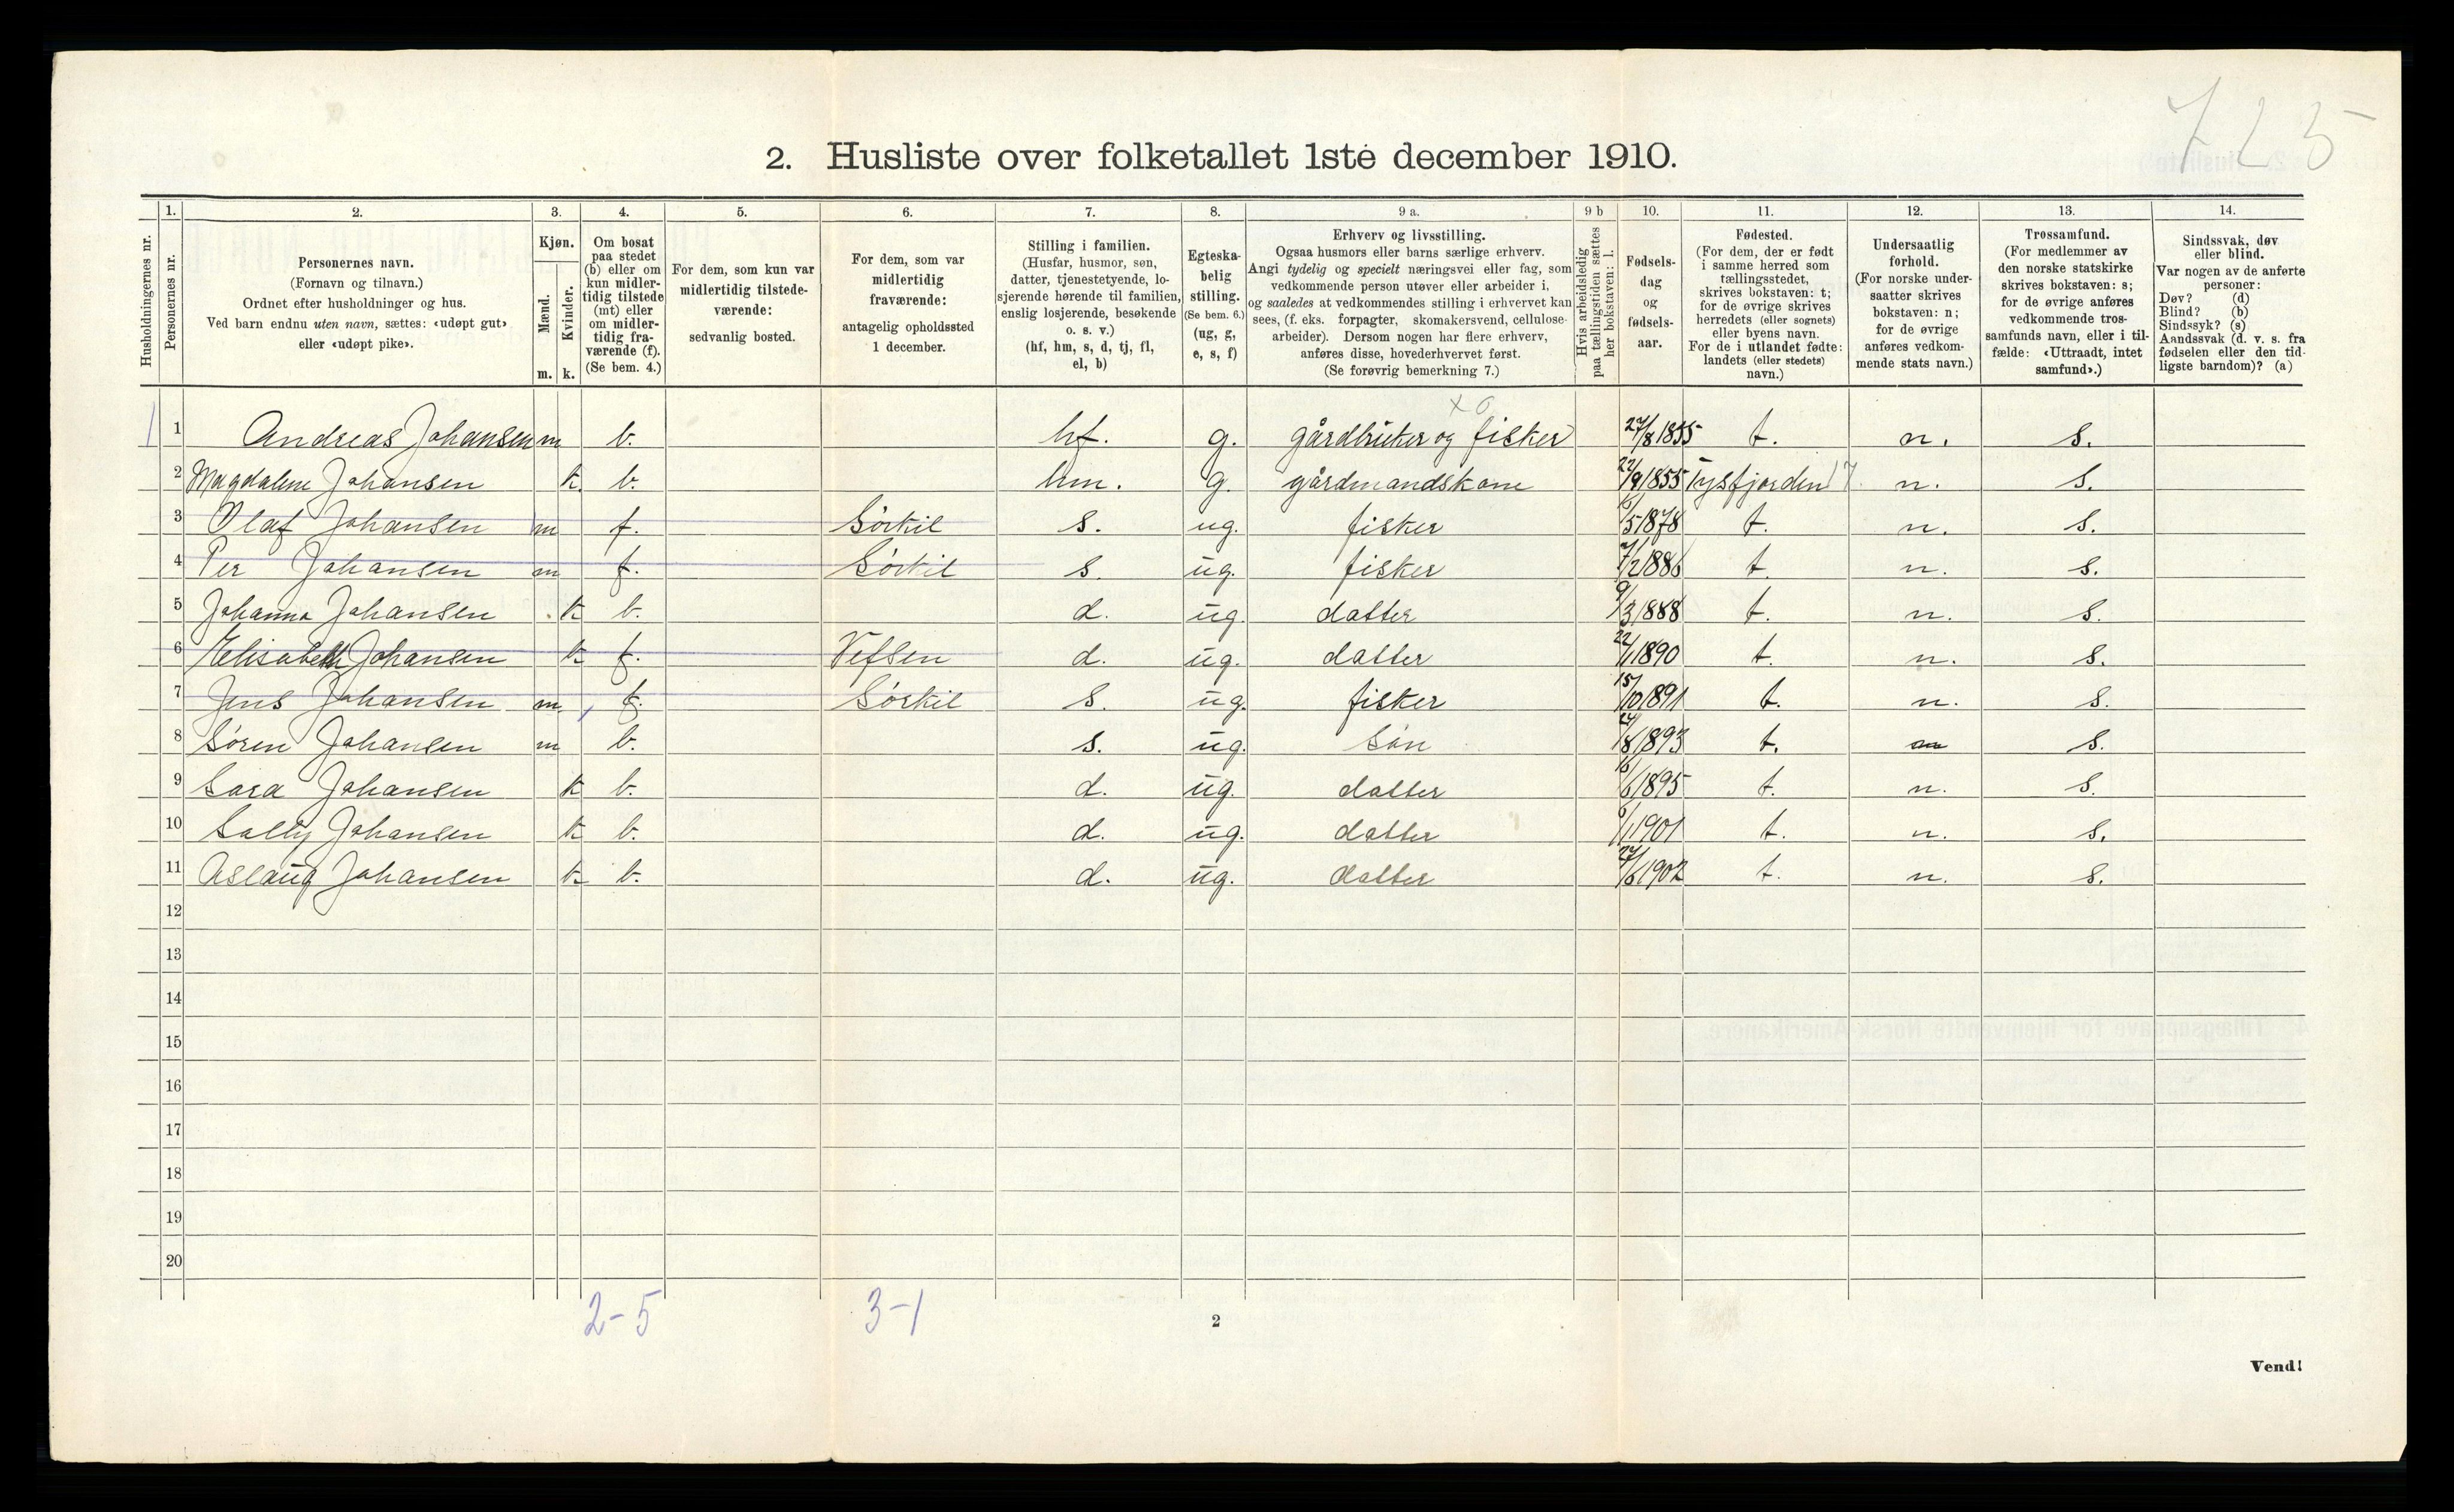 725
2. Husliste over folketallet 1ste december 1910.
Husholdningernes nr.
1. Personernes nr.
2. Personernes navn. (Fornavn og tilnavn.) Ordnet efter husholdninger og hus. Ved barn endnu uten navn, sættes: «udøpt gut» eller «udøpt pike».
3. Kjøn. Mænd. m. Kvinder. k.
4. Om bosat paa stedet (b) eller om kun midlertidig tilstede (mt) eller om midlertidig fraværende (f). (Se bem. 4.)
5. For dem, som kun var midlertidig tilstedeværende: sedvanlig bosted.
6. For dem, som var midlertidig fraværende: antagelig opholdssted 1 december.
7. Stilling i familien. (Husfar, husmor, søn, datter, tjenestetyende, losjerende hørende til familien, enslig losjerende, besøkende o. s. v.) (hf, hm, s, d, tj, fl, el, b)
8. Egteskabelig stilling. (Se bem. 6.) (ug, g, e, s, f)
9 a. Erhverv og livsstilling. Ogsaa husmors eller barns særlige erhverv. Angi tydelig og specielt næringsvei eller fag, som vedkommende person utøver eller arbeider i, og saaledes at vedkommendes stilling i erhvervet kan sees, (f. eks. forpagter, skomakersvend, cellulosearbeider). Dersom nogen har flere erhverv, anføres disse, hovederhvervet først. (Se forøvrig bemerkning 7.)
9 b Hvis arbeidsledig paa tællingstiden sættes her bokstaven: l.
10. Fødselsdag og fødselsaar.
11. Fødested. (For dem, der er født i samme herred som tællingsstedet, skrives bokstaven: t; for de øvrige skrives herredets (eller sognets) eller byens navn. For de i utlandet fødte: landets (eller stedets) navn.)
12. Undersaatlig forhold. (For norske undersaatter skrives bokstaven: n; for de øvrige anføres vedkommende stats navn.)
13. Trossamfund. (For medlemmer av den norske statskirke skrives bokstaven: s; for de øvrige anføres vedkommende trossamfunds navn, eller i tilfælde: «Uttraadt, intet samfund».)
14. Sindssvak, døv eller blind. Var nogen av de anførte personer: Døv? (d) Blind? (b) Sindssyk? (s) Aandssvak (d. v. s. fra fødselen eller den tidligste barndom)? (a)
x o
1 1 Andreas Johansen m b. hf. g. gårdbruker og fisker 27/8 1855 t. n. s.
2 Magdalene Johansen k. b. hm. g. gårdmandskone 22/9 1855 Tysfjorden 17 n. s.
3 Olaf Johansen m f. Sørkil s. ug. fisker /5 1878 t. n. s.
4 Per Johansen m f. Sørkil s. ug. fisker 7/2 1886 t. n. s.
5 Johanna Johansen k b. d. ug. datter 9/3 1888 t. n. s.
6 Elisabeth Johansen k f. Vefsen d. ug. datter 22/1 1890 t. n. s.
7 Jens Johansen m. f. Sørkil s. ug. fisker 15/10 1891 t. n. s.
8 Søren Johansen m b. s. ug. Søn 24/8 1893 t. s.
9 Sara Johansen k b. d. ug. datter 16/6 1895 t. n. s.
10 Sally Johansen k b. d. ug. datter 6/1 1901 t. n. s.
11 Aslaug Johansen k b. d. ug. datter 27/6 1902 t. n. s.
12
13
14
15
16
17
18
19
20
2-5 3-1
2
Vend!